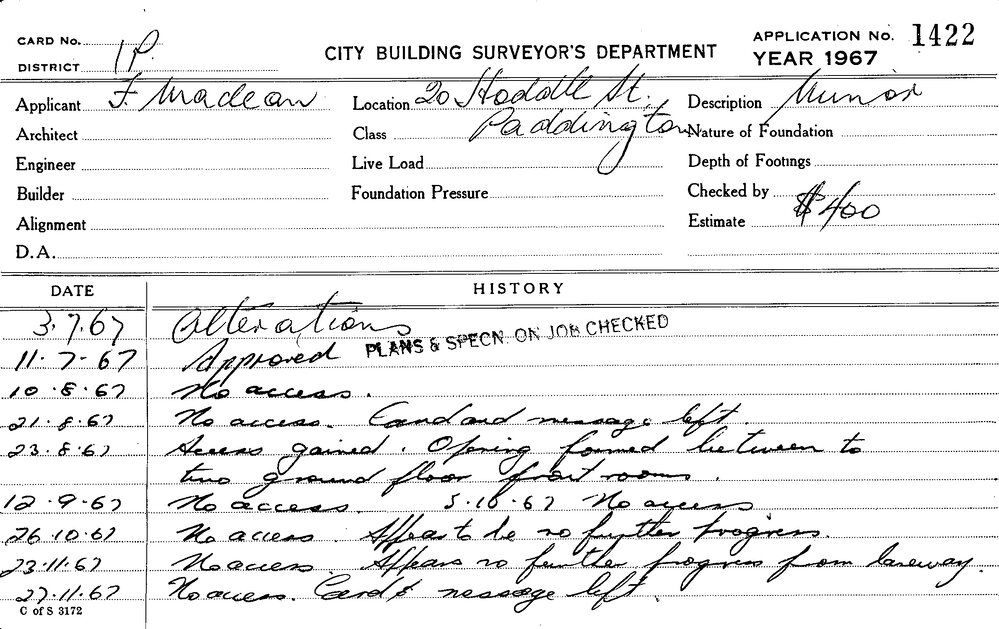 CARD No.
DISTRICT 1P
CITY BUILDING SURVEYOR'S DEPARTMENT
APPLICATION No. 1422
YEAR 1967
Applicant F.
Location 20 Hoddle St.
Description Minor
Architect
Class Paddington
Nature of Foundation
Engineer
Live Load
Depth of Footings
Builder
Foundation Pressure
Checked by
Alignment
Estimate $400
D.A.
DATE HISTORY
3.7.67 Alterations
PLANS & SPECN. ON JOB CHECKED
11.7-67 Approved
10.8.67 No access.
21.8.67 No access. Card and message left.
23.8.67 Access gained. Opening formed between to
two ground floor front rooms.
12.9.67 No access. 5.10.67 No access
26.10.67 No access. Appears to be no further progress.
23.11.67 No access. Appears no further progress from laneway.
27.11.67 No access. Card & message left.
C of S 3172